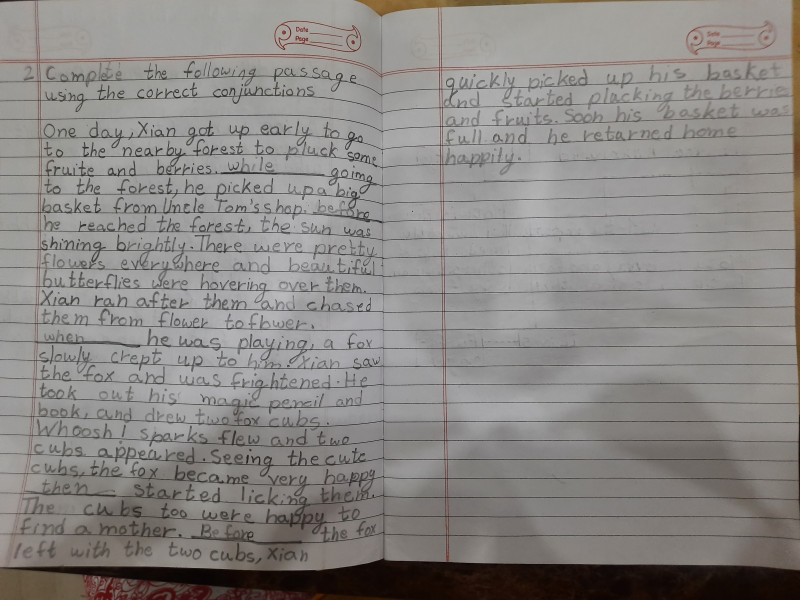 Date
Page
2 Complete the following passage
using the correct conjunctions
One day, Xian got up early to go
to the nearby forest to pluck some
fruite and berries. while going
to the forest, he picked up a big
basket from Uncle Tom's shop. before
he reached the forest, the sun was
shining brightly. There were pretty
flowers everywhere and beautiful
butterflies were hovering over them.
Xian ran after them and chased
them from flower to flower.
when he was playing, a fox
slowly crept up to him. Xian saw
the fox and was frightened. He
took out his magic pencil and
book, and drew two fox cubs.
Whoosh! sparks flew and two
cubs appeared. Seeing the cute
cubs, the fox became very happy
then started licking them.
The cubs too were happy to
find a mother. Before the fox
left with the two cubs, Xian
Date
Page
quickly picked up his basket
and started plucking the berries
and fruits. Soon his basket was
full and he returned home
happily.